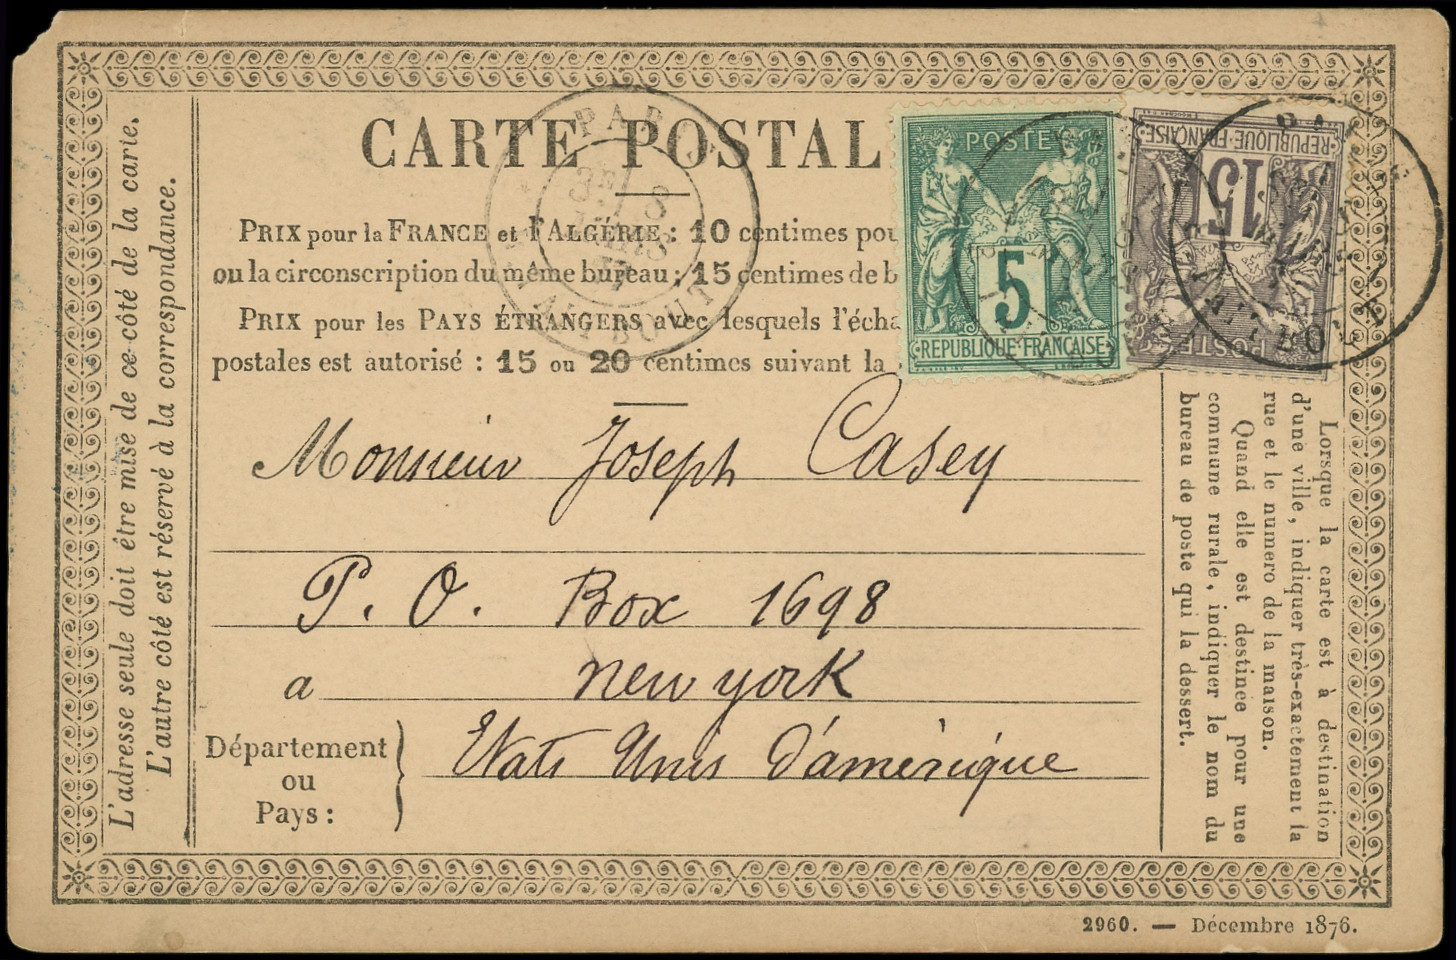 CARTE POSTAL
PRIX pour la FRANCE et l'ALGÉRIE : 10 centimes pou
ou la circonscription du même bureau ; 15 centimes de b
PRIX pour les PAYS ÉTRANGERS avec lesquels l'écha
postales est autorisé : 15 ou 20 centimes suivant la
POSTE
5
REPUBLIQUE FRANÇAISE
REPUBLIQUE FRANÇAISE
15
POSTE
PARIS
TAITBOUT
L'adresse seule doit être mise de ce côté de la carie.
L'autre côté est réservé à la correspondance.
Monsieur Joseph Casey
P. O. Box 1698
a new york
Département
ou
Pays :
Etats Unis d'amérique
Lorsque la carte est à destination
d'une ville, indiquer très-exactement la
rue et le numero de la maison.
Quand elle est destinée pour une
commune rurale, indiquer le nom du
bureau de poste qui la dessert.
2960. — Décembre 1876.